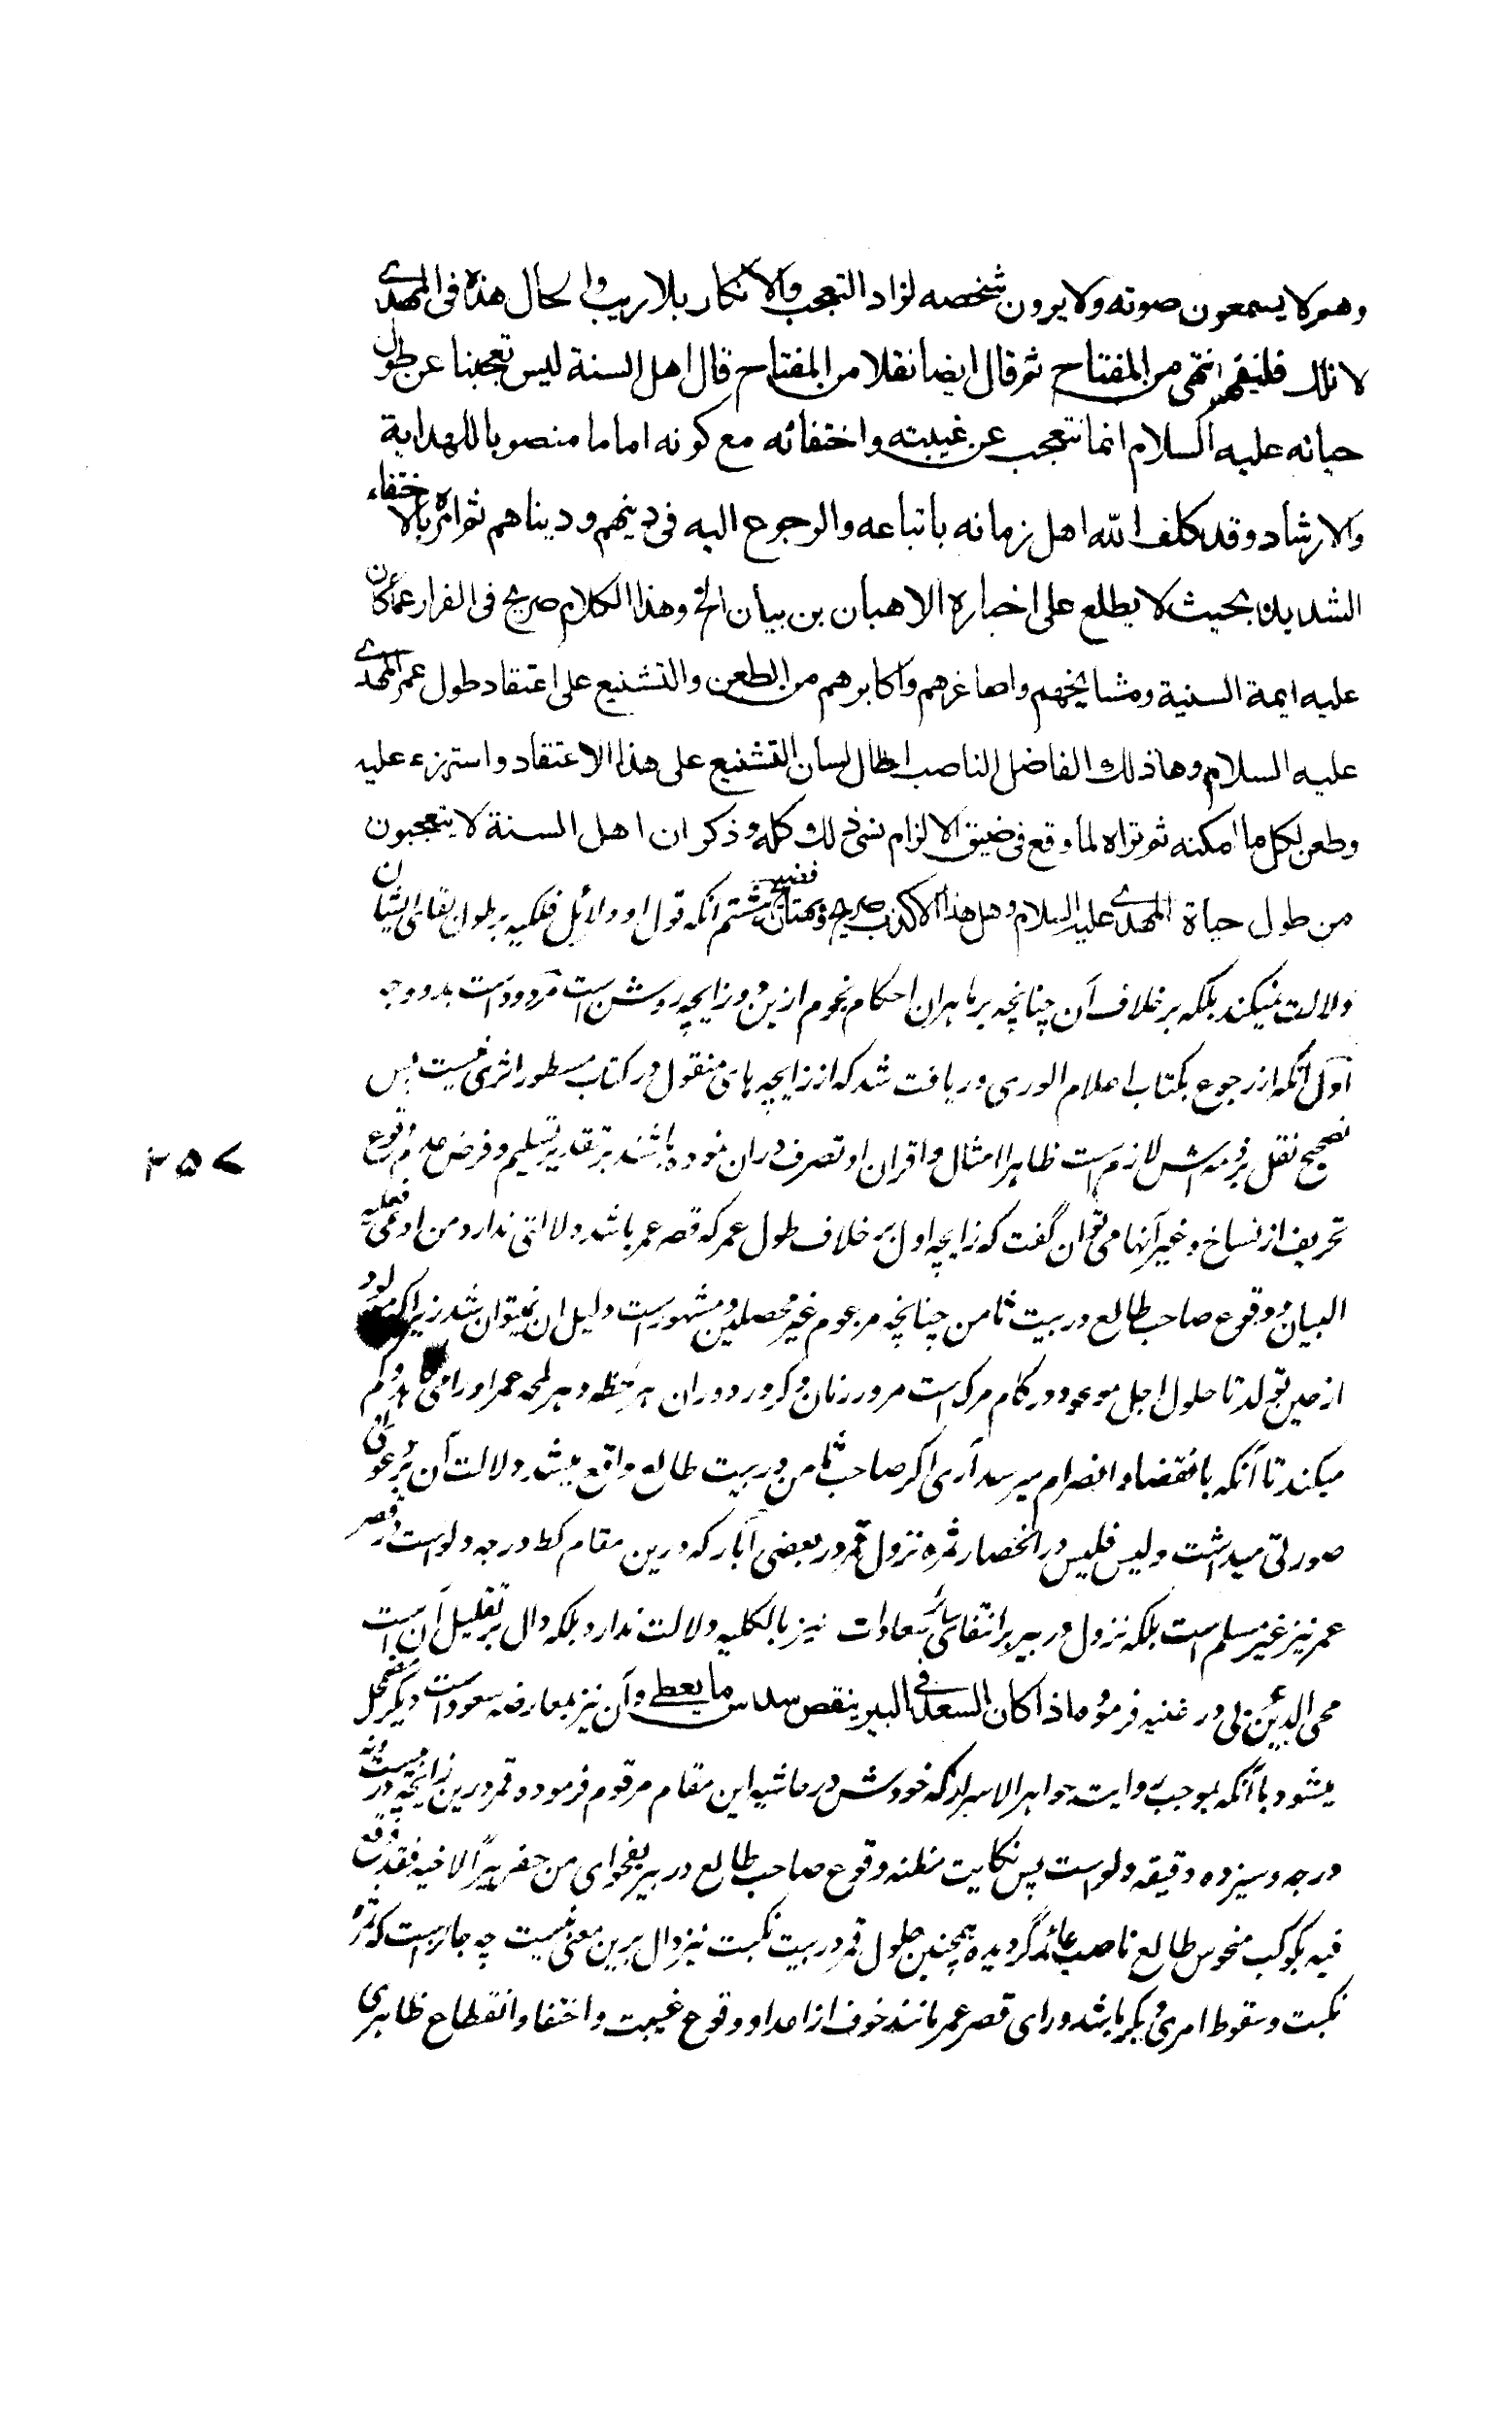 وهم لا يسمعون صوته ولا يرون شخصه لزاد التعجب والانكار بلا ريب والحال هذه فى المهدى
لا تلك فليفهم انتهى من المفتاح ثم قال ايضا نقلا من المفتاح قال اهل السنة ليس تعجبنا عن طول
حياته عليه السلام انما نتعجب عن غيبته واختفائه مع كونه اماما منصوبا للهداية
والارشاد وقد كلف الله اهل زمانه باتباعه والرجوع اليه فى دينهم ودنياهم ثم امره بالاختفاء
الشديد بحيث لا يطلع على اخباره الا هبان بن بيان الخ وهذا الكلام صريح فى الفرار عما كان
عليه ايمة السنية ومشايخهم واصاغرهم واكابرهم من الطعن والتشنيع على اعتقاد طول عمر المهدى
عليه السلام وهذا ذلك الفاضل الناصب اطال لسان التشنيع على هذا الاعتقاد واستهزء عليه
وطعن بكل ما امكنه ثم تراه لما وقع فى ضيق الالزام نسى ذلك كله وذكر ان اهل السنة لا يتعجبون
من طول حياة المهدى عليه السلام وهل هذا الا كذب صريح وبهتان فضيح هشتم انكه قول او دلائل فلكيه بر طول بقاى ايشان
دلالت نميكند بلكه بر خلاف آن چنانچه بر ماهران احكام نجوم ازين دو زايچه روشن است مردود است بدو وجه
اول آنكه از رجوع بكتاب اعلام الورى دريافت شد كه از زايچه هاى منقول در كتاب مسطور اثرى نيست پس
تصحيح نقل بر ذمه اش لازم است ظاهرا امثال و اقران او تصرف دران نموده باشند بر تقدير تسليم و فرض عدم وقوع
تحريف از نساخ و غير آنها مى توان گفت كه زايچه اول بر خلاف طول عمر كه قصر عمر باشد دلالتى ندارد و من ادعى فعليه
البيان و وقوع صاحب طالع در بيت ثامن چنانچه مزعوم غير محصلين و مشهور است دليل ان نميتوان شد زيرا كه مولود
از حين تولد تا حلول اجل موعود در كام مرگ است مرور زمان و كرور دوران هر لحظه و هر لمحه عمر او را مى كاهد و كم
ميكند تا آنكه بانقضا و انصرام ميرسد آرى اگر صاحب ثامن در بيت طالع واقع ميشد دلالت آن بر دعواى
صورتى ميداشت وليس فليس و انحصار ثمره نزول قمر در بعضى آبار كه درين مقام كط درجه دلو است در قصر
عمر نيز غير مسلم است بلكه نزول در بير بر انتفاى سائر سعادات نيز بالكليه دلالت ندارد بلكه دال بر تقليل آن است
محى الدين در غنيه فرموده اذا كان السعد فى البير ينقص سدس ما يعطى و آن نيز بمعارضه سعود است ديگر مضمحل
ميشود با آنكه بموجب روايت جواهر الاسرار كه خودش در حاشيه اين مقام مرقوم فرموده و قمر درين زايچه در بيست و نه
درجه و سيزده دقيقه دلو است پس نكايت مظنه وقوع صاحب طالع در بير بفحواى من حفر بيرا لاخيه فقد وقع
فيه بكوكب منحوس طالع ناصب عائد گرديده همچنين حلول قمر در بيت نكبت نيز دال برين معنى نيست چه جائز است كه ثمره
نكبت و سقوط امرى ديگر باشد وراى قصر عمر مانند خوف از اعدا و وقوع غيبت و اختفا و انقطاع ظاهرى
۳۵۷